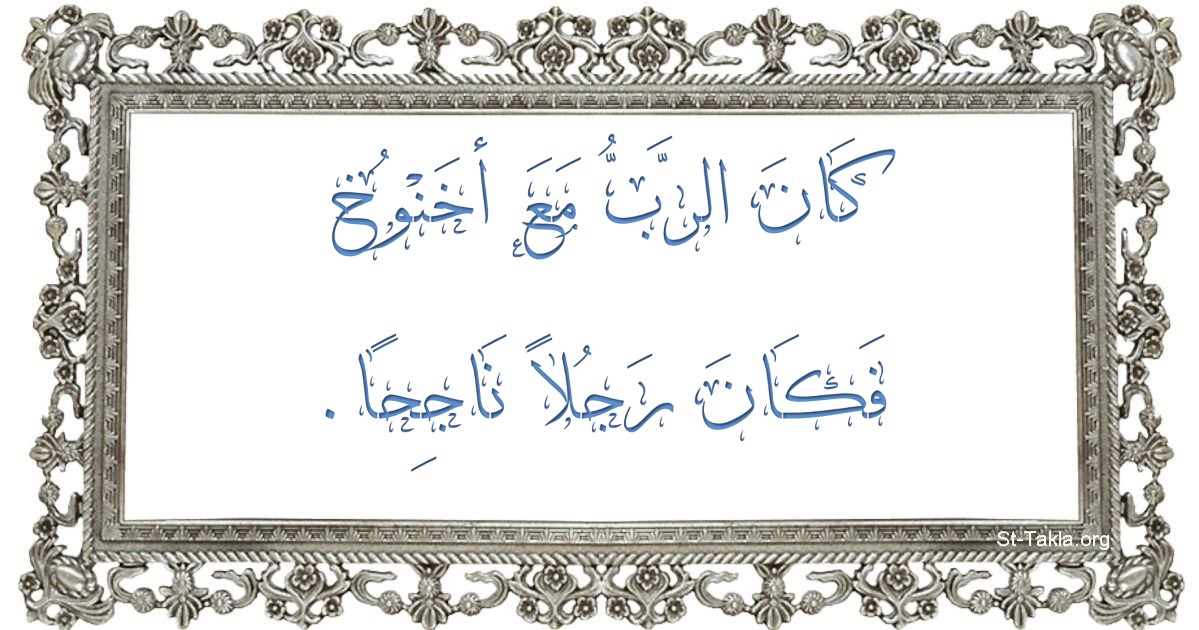 كَانَ الرَّبُّ مَعَ أخَنْوُخ
فَكَانَ رَجُلاً نَاجِحًا .
St-Takla.org